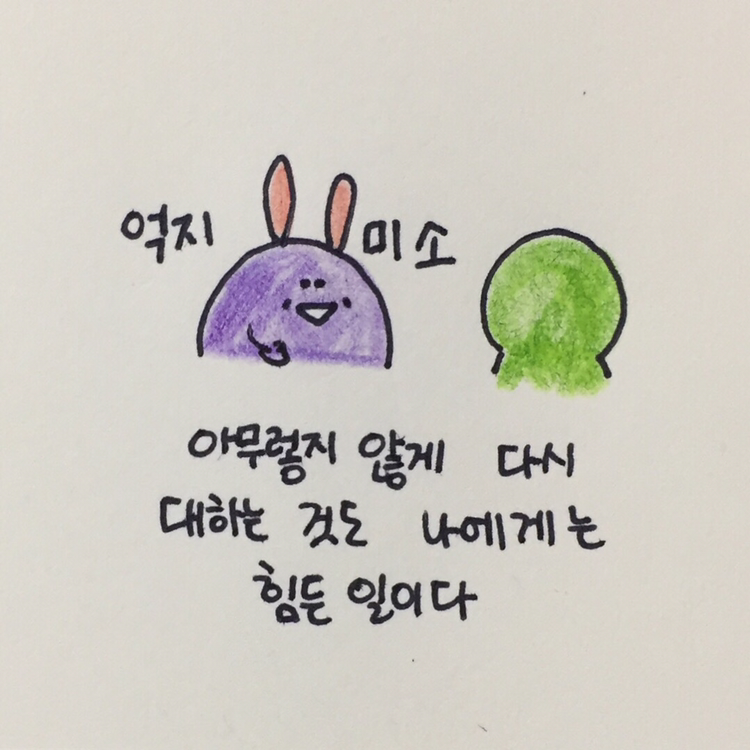 억지 미소
아무렇지 않게 다시
대하는 것도 나에게는
힘든 일이다